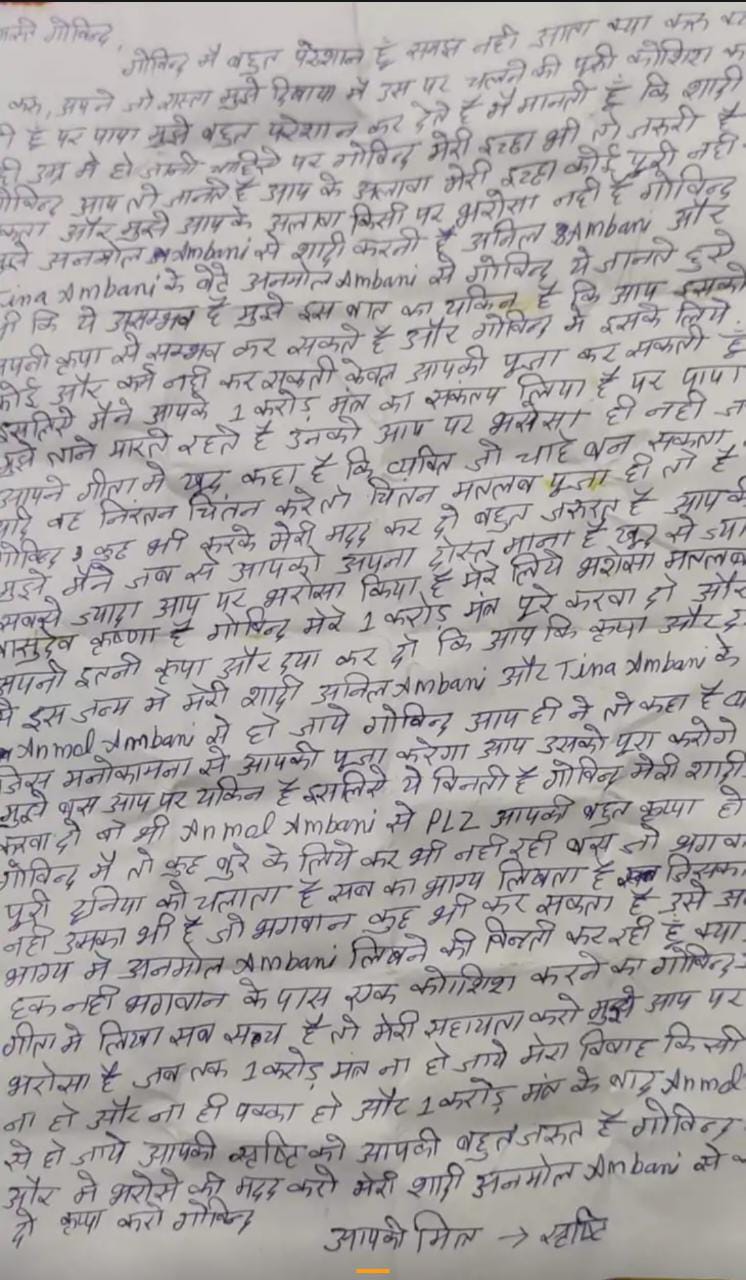 गोविन्द,
गोविन्द मै बहुत परेशान हूँ समझ नही आता क्या करू
करू, आपने जो रास्ता मुझे दिखाया मै उस पर चलने की पूरी कोशिश
है पर पापा मुझे बहुत परेशान कर देते है मै मानती हूँ कि शादी
उम्र मे हो जानी चाहिये पर गोविन्द मेरी इच्छा भी तो जरुरी है
गोविन्द आप तो जानते है आप के अलावा मेरी इच्छा कोई पूरी नही
और मुझे आपके अलावा किसी पर भरोसा नही है गोविन्द
मुझे अनमोल Ambani से शादी करनी है अनिल Ambani और
Tina Ambani के बेटे अनमोल Ambani से गोविन्द ये जानते हुये
भी कि ये असम्भव है मुझे इस बात का यकिन है कि आप इसको
अपनी कृपा से सम्भव कर सकते है और गोविन्द मे इसके लिये
कोई और कर्म नही कर सकती केवल आपकी पूजा कर सकती हूँ
इसलिये मैने आपके 1 करोड़ मंत्र का संकल्प लिया है पर पापा
मुझे ताने मारते रहते है उनको आप पर भरोसा ही नही
आपने गीता मे खुद कहा है कि व्यक्ति जो चाहे बन सकता
यदि वह निरंतन चिंतन करे तो चिंतन मतलब पूजा ही तो है
गोविन्द कुछ भी करके मेरी मदद कर दो बहुत जरुरत है आपकी
मुझे मैने जब से आपको अपना दोस्त माना है खुद से
सबसे ज्यादा आप पर भरोसा किया है मेरे लिये भरोसा मतलब
वासुदेव कृष्णा है गोविन्द मेरे 1 करोड़ मंत्र पूरे करवा दो और
अपनी इतनी कृपा और दया कर दो कि आप कि कृपा और
से इस जन्म मे मेरी शादी अनिल Ambani और Tina Ambani के
Anmol Ambani से हो जाये गोविन्द आप ही ने तो कहा है
जिस मनोकामना से आपकी पूजा करेगा आप उसको पूरा करोगे
मुझे बस आप पर यकिन है इसलिये ये विनती है गोविन्द मेरी शादी
करवा दो वो भी Anmol Ambani से PLZ आपकी बहुत कृपा हो
गोविन्द मै तो कुछ बुरे के लिये कर भी नही रही बस जो
पूरी दुनिया को चलाता है सब का भाग्य लिखता है जिसका
नही उसका भी है जो भगवान कुछ भी कर सकता है उसे
भाग्य मे अनमोल Ambani लिखने की विनती कर रही हूँ क्या
हक नही भगवान के पास एक कोशिश करने का गोविन्द
गीता मे लिखा सब सत्य है तो मेरी सहायता करो मुझे आप पर
भरोसा है जब तक 1 करोड़ मंत्र ना हो जाये मेरा विवाह किसी
ना हो और ना ही पक्का हो और 1 करोड़ मंत्र के बाद Anmol
से हो जाये आपकी सृष्टि को आपकी बहुत जरुत है गोविन्द
और मे भरोसे की मदद करो मेरी शादी अनमोल Ambani से
दो कृपा करो गोविन्द
आपकी मित्र → सृष्टि